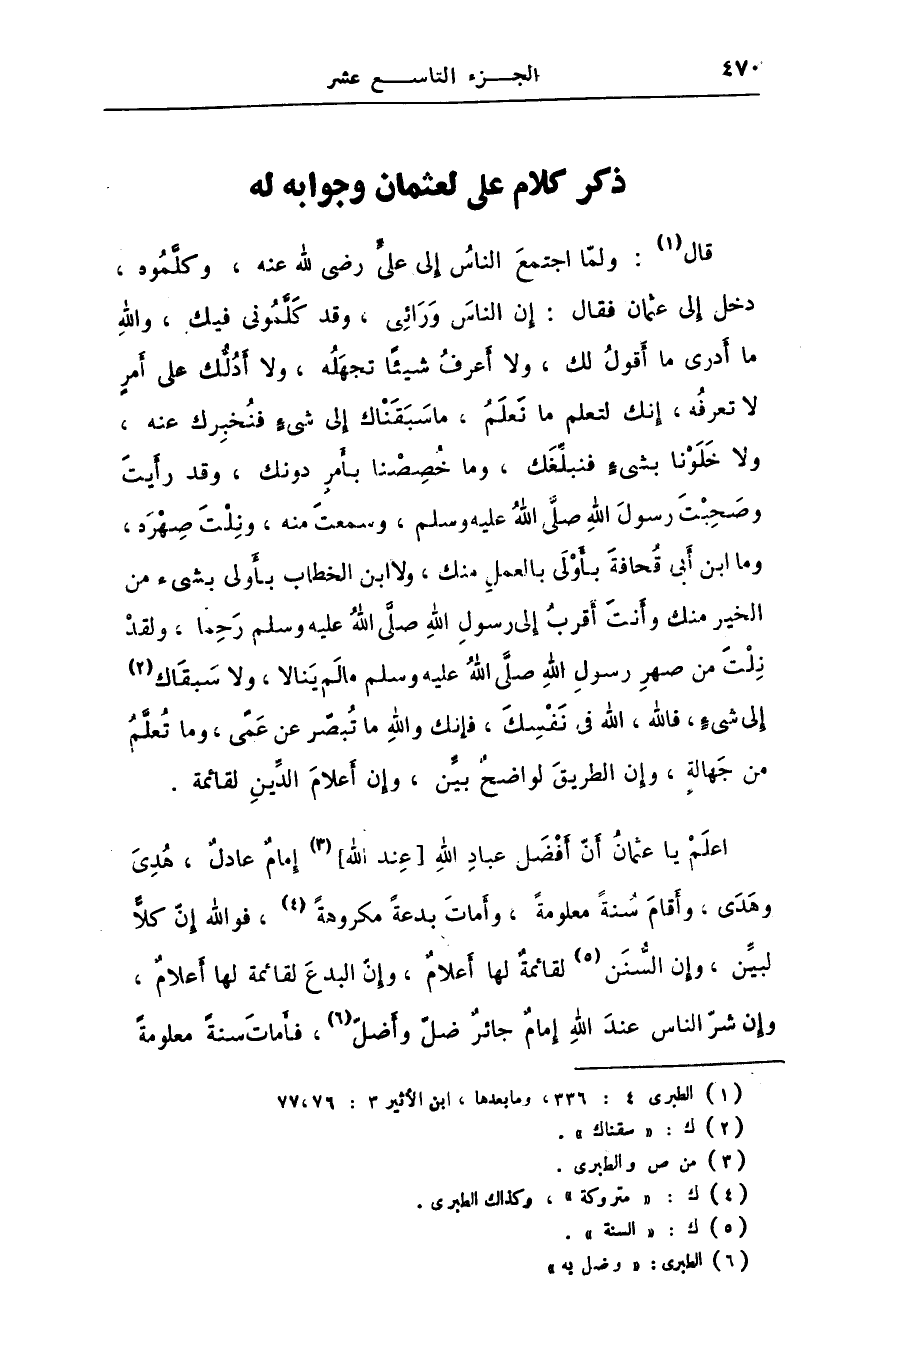 ٤٧٠
الجزء التاسع عشر
ذكر كلام على لعثمان وجوابه له
قال(١) : ولمّا اجتمعَ الناسُ إلى علىٍّ رضى لله عنه ، وكلَّمُوه ،
دخل إلى عثمان فقال : إن الناسَ وَرَائِى ، وقد كَلَّمُونى فيك ، واللهِ
ما أَدرى ما أَقولُ لك ، ولا أَعرفُ شيئًا تجهَلُه ، ولا أَدُلُّك على أَمرٍ
لا تعرفُه ، إنك لتعلم ما نَعلَمُ ، ماسَبَقَنْاك إلى شىءٍ فنُخبِرك عنه ،
ولا خَلَوْنا بشىءٍ فنبلِّغَك ، وما خُصِصْنا بأَمرٍ دونك ، وقد رأَيتَ
وصَحِبْتَ رسولَ اللهِ صلَّى اللهُ عليه وسلم ، وسمعتَ منه ، ونِلْتَ صِهْرَه ،
وما ابن أَبى قُحافةَ بأَوْلَى بالعملِ منك ، ولاابن الخطاب بأَولى بشىء من
الخير منك وأَنتَ أَقربُ إلى رسولِ اللهِ صلَّى اللهُ عليه وسلم رَحِما ، ولقدْ
نِلْتَ من صهرِ رسولِ اللهِ صلَّى اللهُ عليه وسلم مالَم يَنالا ، ولا سَبقَاك(٢)
إلى شىءٍ ، فالله ، الله فى نَفْسِكَ ، فإنك واللهِ ما تُبصّر عن عَمًى ، وما تُعلَّمُ
من جَهالةٍ ، وإن الطريقَ لواضحٌ بيِّن ، وإن أَعلامَ الدِّينِ لقائمة .
اعلَمْ يا عثمانُ أَنّ أَفْضَل عبادِ اللهِ [عِند الله](٣) إمامٌ عادلٌ ، هُدِىَ
وهَدَى ، وأَقامَ سُنةً معلومةً ، وأَماتَ بدعةً مكروهةً(٤) ، فوالله إنّ كلاًّ
لبيِّن ، وإن السُّنَن(٥) لقائمةٌ لها أَعلامٌ ، وإنّ البدعَ لقائمة لها أَعلامٌ ،
وإن شرّ الناس عندَ اللهِ إمامٌ جائرٌ ضلّ وأَضلّ(٦) ، فأَماتَ سنةً معلومةً
(١) الطبرى ٤ : ٣٣٦، ومابعدها ، ابن الأثير ٣ : ٧٦،٧٧
(٢) ك : « سقناك » .
(٣) من ص والطبرى .
(٤) ك : « متروكة » ، وكذاك الطبرى .
(٥) ك : « السنة » .
(٦) الطبرى : « وضل به »